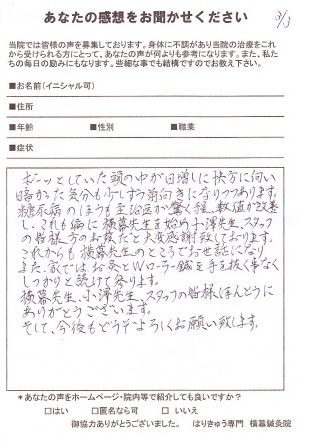 あなたの感想をお聞かせください
3/3
当院では皆様の声を募集しております。身体に不調があり当院の治療をこれ
から受けられる方にとって、あなたの声が何よりも参考になります。また、私た
ちの毎日の励みにもなります。些細な事でも結構ですのでお教え下さい。
■お名前(イニシャル可)
■住所
■年齢 ■性別 ■職業
■症状
ボーッとしていた頭の中が日増しに快方に向い
暗かった気分も少しずつ前向きになりつつあります。
糖尿病のほうも主治医が驚く程、数値が改善
し、これも病に横幕先生を始め小澤先生、スタッフ
の皆様方のお陰だと大変感謝致しております。
これからも横幕先生のところでお世話になり
また、家ではお灸とWローラー鍼を手を抜く事なく
しっかりと続けて参ります。
横幕先生、小澤先生、スタッフの皆様ほんとうに
ありがとうございます。
そして、今後もどうぞよろしくお願い致します。
*あなたの声をホームページ・院内等で紹介しても良いですか?
□はい □匿名なら可 □いいえ
御協力ありがとうございました。 はりきゅう専門 横幕鍼灸院